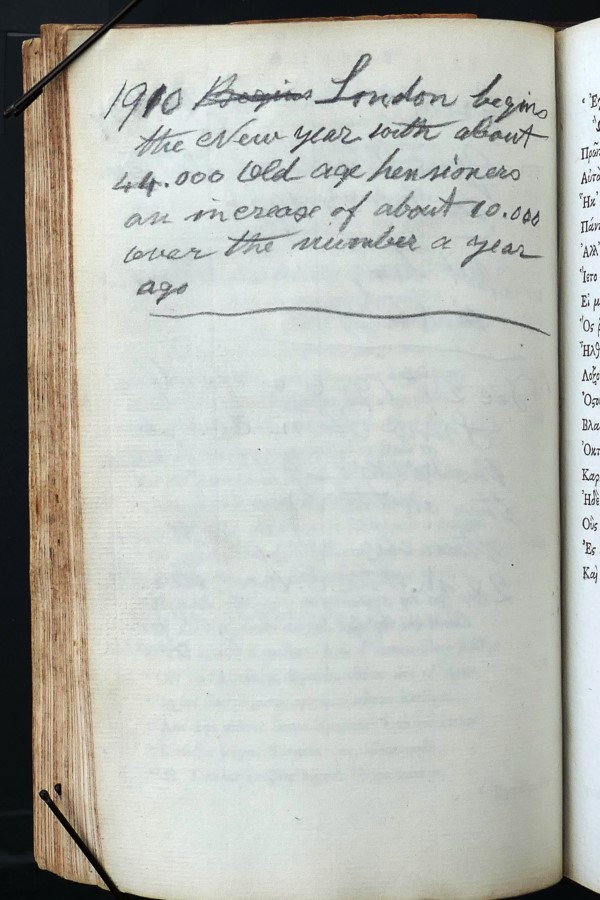 1910 Begins London begins
the New year with about
44.000 Old age pensioners
an increase of about 10.000
over the number a year
ago
Πρῶτ
Αὐτὰ
Πάν
Ἀλλ'
Εἰ μ
Ὃς
Βλα
Ὀκτ
Καρ
Οὓς
Ἐς
Καὶ